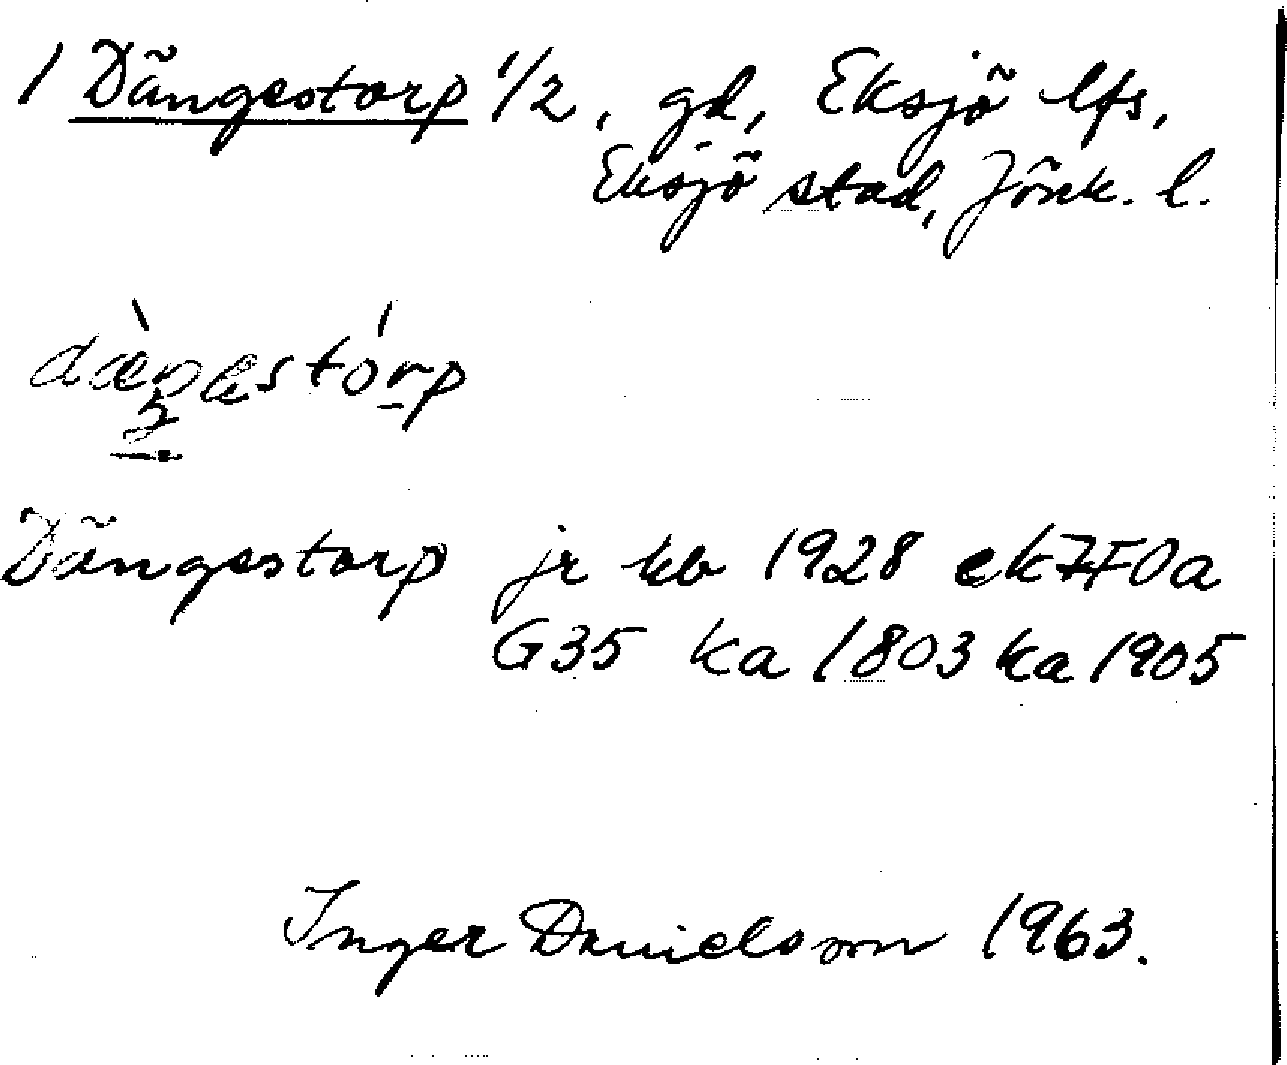 1 Dängestorp 1/2, gd, Eksjö lfs,
Eksjö stad, Jönk. l.
Dängestorp jr kb 1928 ek 7F0a
G35 ka 1803 ka 1905
Inger Danielsson 1963.